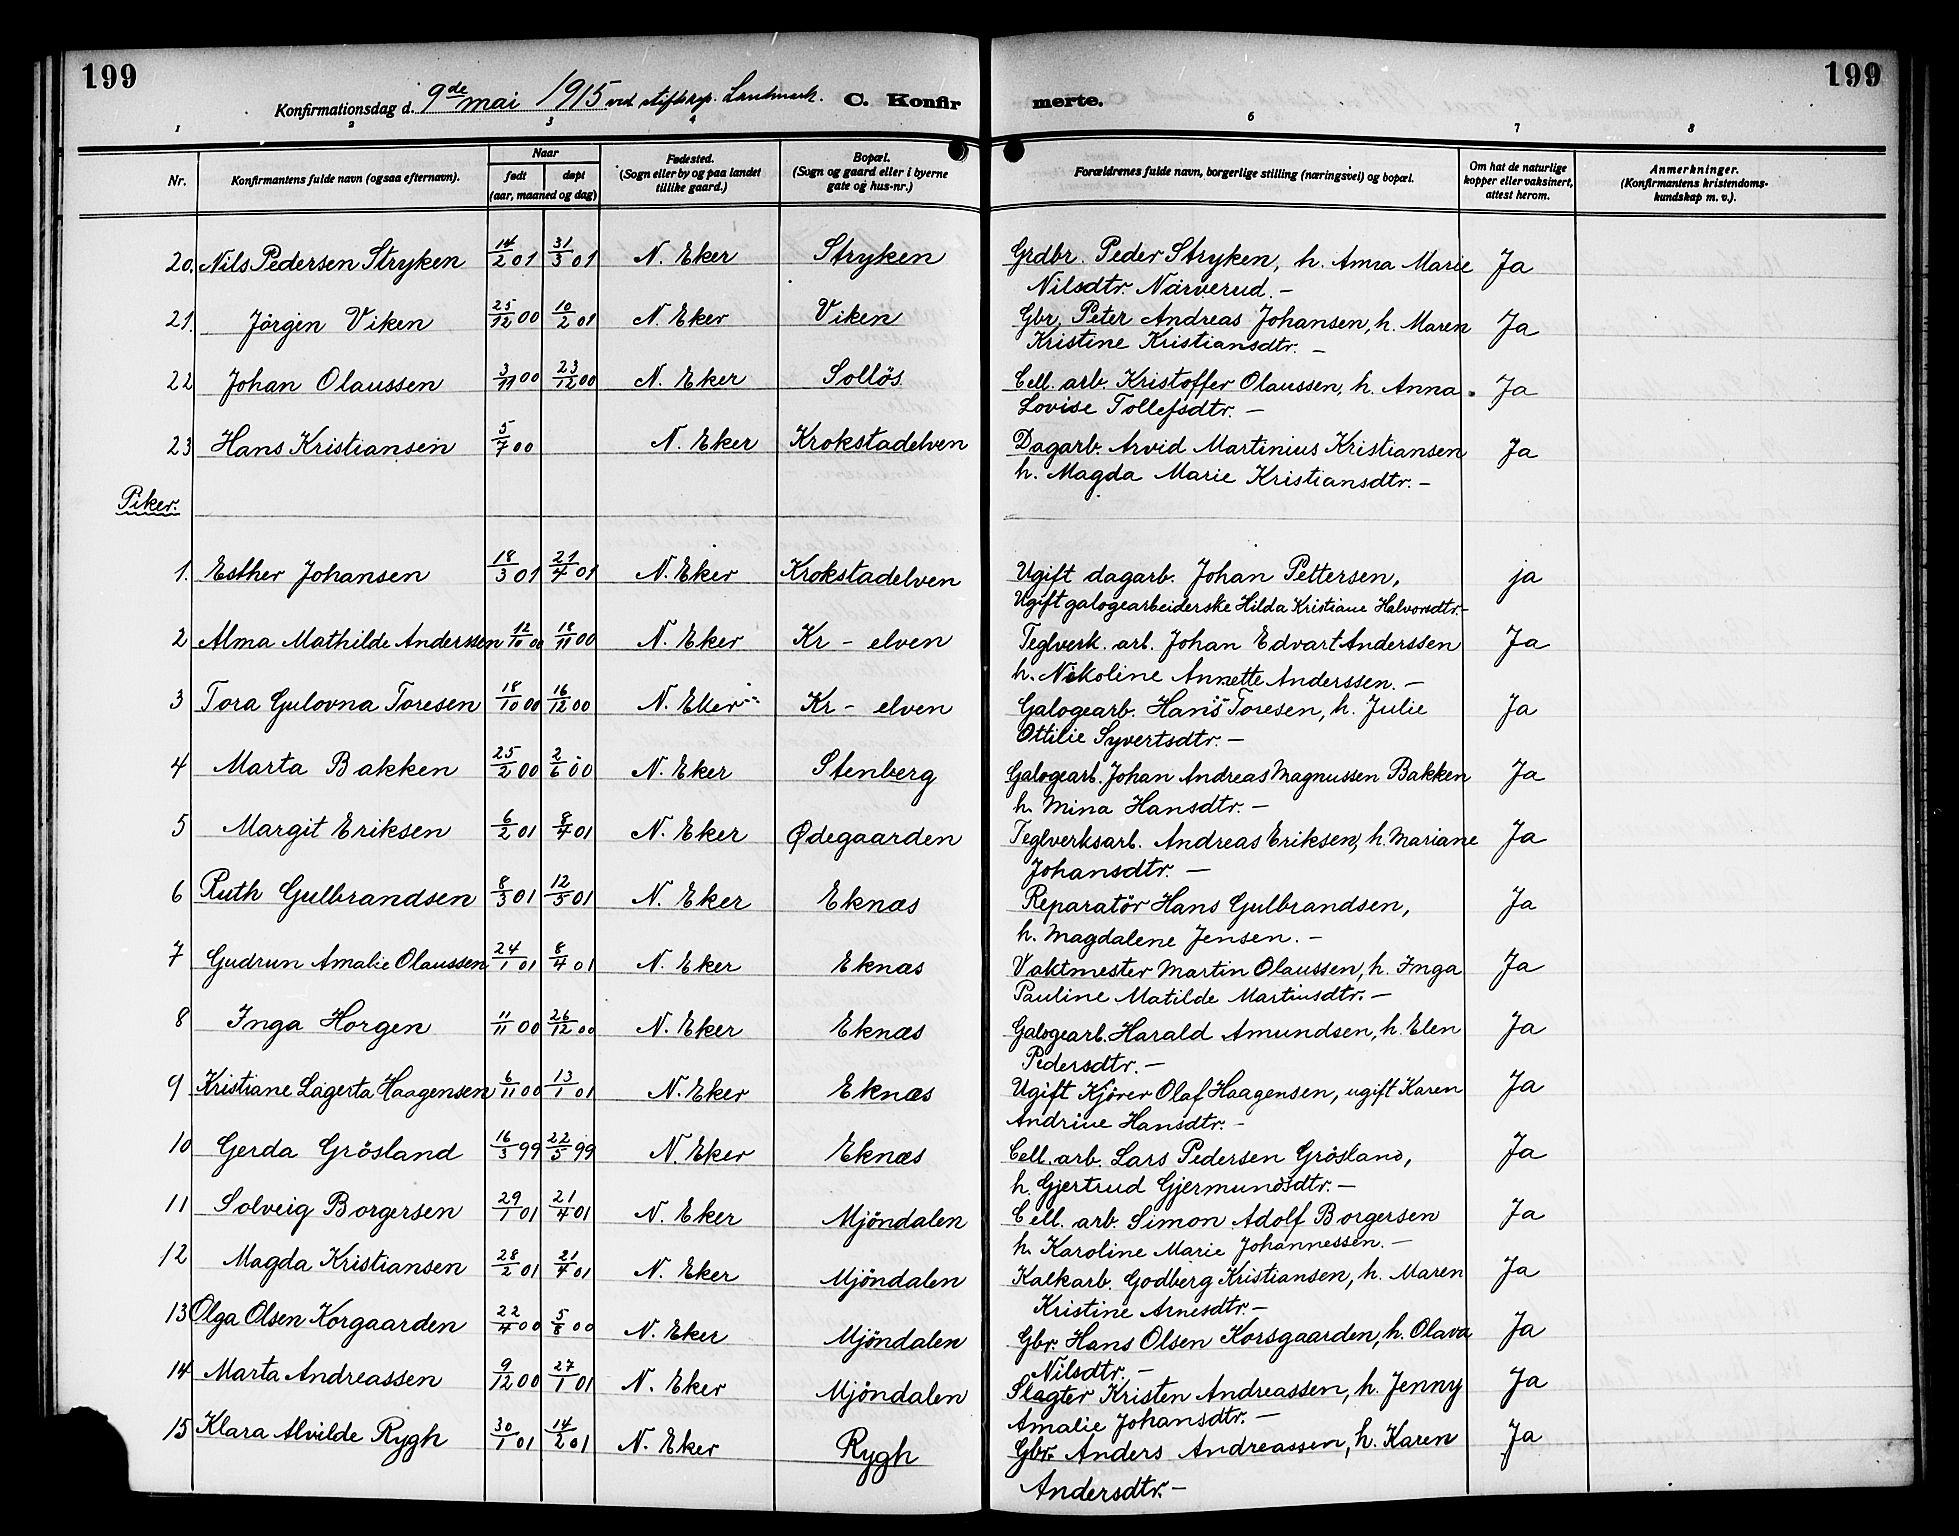 199
199
Konfirmationsdag d. 9de mai 1915 ved stiftskap. Landmark. C. Konfirmerte.
1 2 3 4 6 7 8
Nr. Konfirmantens fulde navn (ogsaa efternavn). Naar født døpt (aar, maaned og dag) Fødested. (Sogn eller by og paa landet tillike gaard.) Bopæl. (Sogn og gaard eller i byerne gate og hus-nr.) Forældrenes fulde navn, borgerlige stilling (næringsvei) og bopæl. Om hat de naturlige kopper eller vaksinert, attest herom. Anmerkninger. (Konfirmantens kristendoms-kundskap m. v.).
20. Nils Pedersen Stryken 14/2 01 31/3 01 N. Eker Stryken Grdbr. Peder Stryken, h. Anna Marie Ja
Nilsdtr. Närverud. –
21. Jörgen Viken 25/12 00 10/2 01 N. Eker Viken Gbr. Peter Andreas Johansen, h. Maren Ja
Kristine Kristiansdtr. –
22 Johan Olaussen 3/11 00 23/12 00 N. Eker Sollös Cell. arb. Kristoffer Olaussen, h. Anna Ja
Lovise Tollefsdtr. –
23 Hans Kristiansen 5/7 00 N. Eker Krokstadelven Dagarb. Arvid Martinius Kristiansen Ja
h. Magda Marie Kristiansdtr. –
Piker.
1. Esther Johansen 18/3 01 21/4 01 N. Eker Krokstadelven Ugift dagarb. Johan Pettersen, ja
Ugift galogearbeiderske Hilda Kristiane Halvorsdtr. –
2 Alma Mathilde Anderssen 12/10 00 18/11 00 N. Eker Kr – elven Teglverk. arb. Johan Edvart Anderssen Ja
h. Nikoline Annette Anderssen. –
3 Tora Gulovna Toresen 18/10 00 16/12 00 N. Eker Kr – elven Galogearb. Hans Toresen, h. Julie Ja
Ottilie Syvertsdtr. –
4 Marta Bakken 25/2 00 2/6 00 N. Eker Stenberg Galogearb. Johan Andreas Magnussen Bakken Ja
h. Mina Hansdtr. –
5 Margit Eriksen 6/2 01 8/4 01 N. Eker Ødegaarden Teglverksarb. Andreas Eriksen, h. Mariane Ja
Johansdtr. –
6 Ruth Gulbrandsen 8/3 01 12/5 01 N. Eker Eknæs Reparatör Hans Gulbrandsen, Ja
h. Magdalene Jensen. –
7 Gudrun Amalie Olaussen 24/1 01 8/4 01 N. Eker Eknæs Vaktmester Martin Olaussen, h. Inga Ja
Pauline Matilde Martinsdtr. –
8 Inga Horgen 11/11 00 26/12 00 N. Eker Eknæs Galogearb. Harald Amundsen, h. Elen Ja
Pedersdtr. –
9 Kristiane Lagerta Haagensen 6/11 00 13/1 01 N. Eker Eknæs Ugift Kjörer Olaf Haagensen, ugift Karen Ja
Andrine Hansdtr. –
10 Gerda Grösland 16/3 99 22/5 99 N. Eker Eknæs Cell. arb. Lars Pedersen Grösland, Ja
h. Gjertrud Gjermundsdtr. –
11 Solveig Borgersen 29/1 01 21/4 01 N. Eker Mjöndalen Cell. arb. Simon Adolf Borgersen Ja
h. Karoline Marie Johannessen. –
12 Magda Kristiansen 28/2 01 21/4 01 N. Eker Mjöndalen Kalkarb. Godberg Kristiansen, h. Maren Ja
Kristine Arnesdtr. –
13 Olga Olsen Korgaarden 22/4 00 5/8 00 N. Eker Mjöndalen Gbr. Hans Olsen Korsgaarden, h. Olava Ja
Nilsdtr. –
14 Marta Andreassen 9/12 00 27/1 01 N. Eker Mjöndalen Slagter Kristen Andreassen, h. Jenny Ja
Amalie Johansdtr. –
15 Klara Alvilde Rygh 30/1 01 14/2 01 N. Eker Rygh Gbr. Anders Andreassen, h. Karen Ja
Andersdtr. –